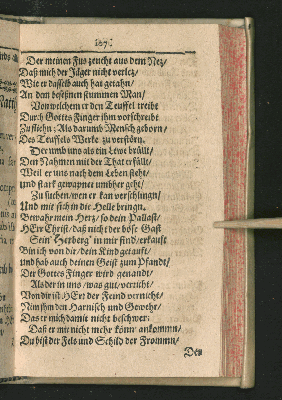 127.
Der meinen Fus zeucht aus dem Nez/
Daß mich der Jäger nicht verlez/
Wie er dasselb auch hat gethan/
An dem beseßnen stummen Man/
Von welchem er den Teuffel treibt
Durch Gottes Finger ihm vorschreibt
Zu fliehn: Als darumb Mensch geborn/
Des Teuffels Werke zu verstörn.
Der umb uns als ein Löwe brüllt/
Den Nahmen mit der That erfüllt/
Weil er uns nach dem Leben steht/
und stark gewapnet umbher geht/
Zu suchen/wen er kan verschlingn/
Und mit sich in die Helle bringn.
Bewahr mein Herz/ so dein Pallast/
HErr Christ/ daß nicht der böse Gast
Sein Herberg' in mir find/erkauft
Bin ich von dir/dein Kind getauft/
und hab auch deinen Geist zum Pfandt/
Der Gottes Finger wird genandt/
Als der in uns/was gut/verricht/
Von dir ist HErr der Feind vernicht/
Nim ihm den Harnisch und Gewehr/
Das er mich damit nicht beschwer:
Daß er mir nicht mehr könn' ankommn/
Du bist der Fels und Schild der Frommn/
Den